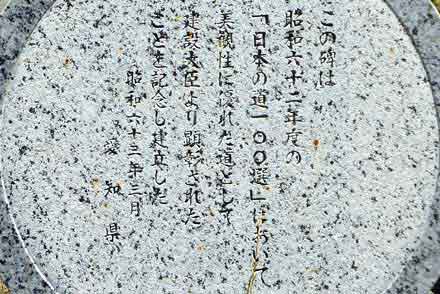 この碑は
昭和六十二年度の
「日本の道一〇〇選」において
美観性に優れた道として
建設大臣より顕彰された
ことを記念し建立した
昭和六十三年三月
愛知県